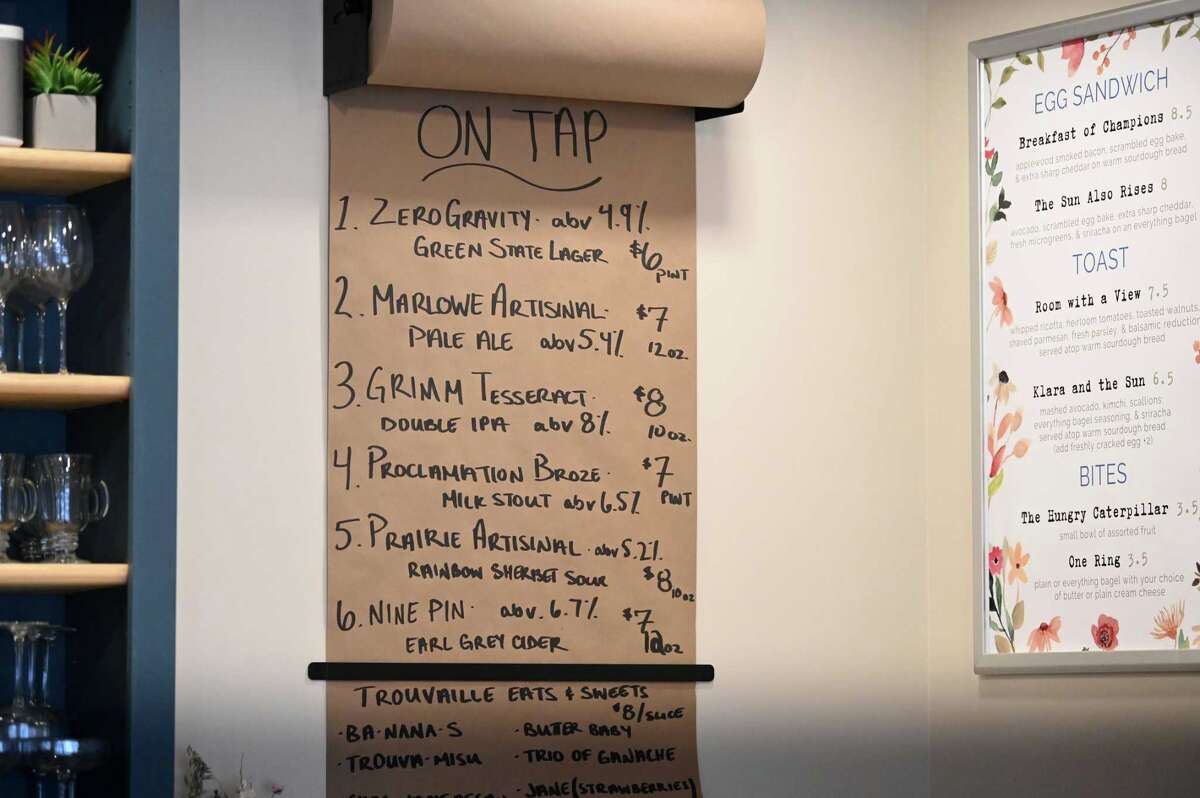 ON TAP
1. ZEROGRAVITY. abv 4.9%
GREEN STATE LAGER $6
PINT
2. MARLOWE ARTISINAL. $7
PALE ALE abv 5.4% 12oz
3. GRIMM TESSERACT. $8
DOUBLE IPA abv 8% 10oz.
4. PROCLAMATION BROZE. $7
MILK STOUT abv 6.5% PINT
5. PRAIRIE ARTISINAL. abv 5.2%
RAINBOW SHERBET SOUR $8 10oz
6. NINE PIN. abv. 6.7% $7
EARL GREY CIDER 12oz
TROUVAILLE EATS & SWEETS
$8/SLICE
·BA·NANA·S ·BUTTER BABY
·TROUVA·MISU ·TRIO OF GANACHE
·JANE (STRAWBERRIES)
EGG SANDWICH
Breakfast of Champions 8.5
applewood smoked bacon, scrambled egg bake,
& extra sharp cheddar on warm sourdough bread
The Sun Also Rises 8
avocado, scrambled egg bake, extra sharp cheddar,
fresh microgreens, & sriracha on an everything bagel
TOAST
Room with a View 7.5
whipped ricotta, heirloom tomatoes, toasted walnuts,
shaved parmesan, fresh parsley, & balsamic reduction
served atop warm sourdough bread
Klara and the Sun 6.5
mashed avocado, kimchi, scallions,
everything bagel seasoning, & sriracha
served atop warm sourdough bread
(add freshly cracked egg +2)
BITES
The Hungry Caterpillar 3.5
small bowl of assorted fruit
One Ring 3.5
plain or everything bagel with your choice
of butter or plain cream cheese